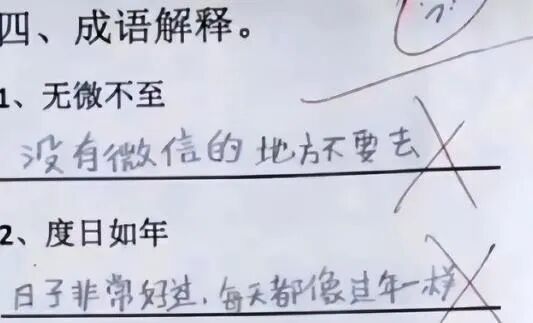 四、成语解释。
1、无微不至
没有微信的地方不要去
2、度日如年
日子非常好过，每天都像过年一样